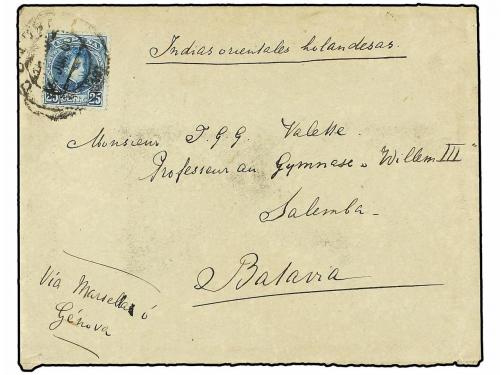 Indias orientales holandesas.
25 25
Monsieur T. G. G. Valette.
Professeur au Gymnase „Willem III"
Salemba-
Batavia
Via Marsella ó
Génova